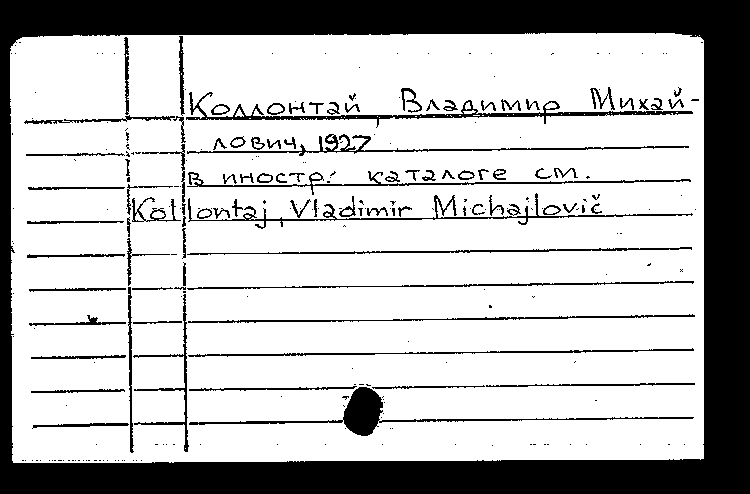 Коллонтай, Владимир Михай-
лович, 1927
в иностр. каталоге см.
Kollontaj, Vladimir Michajlovič